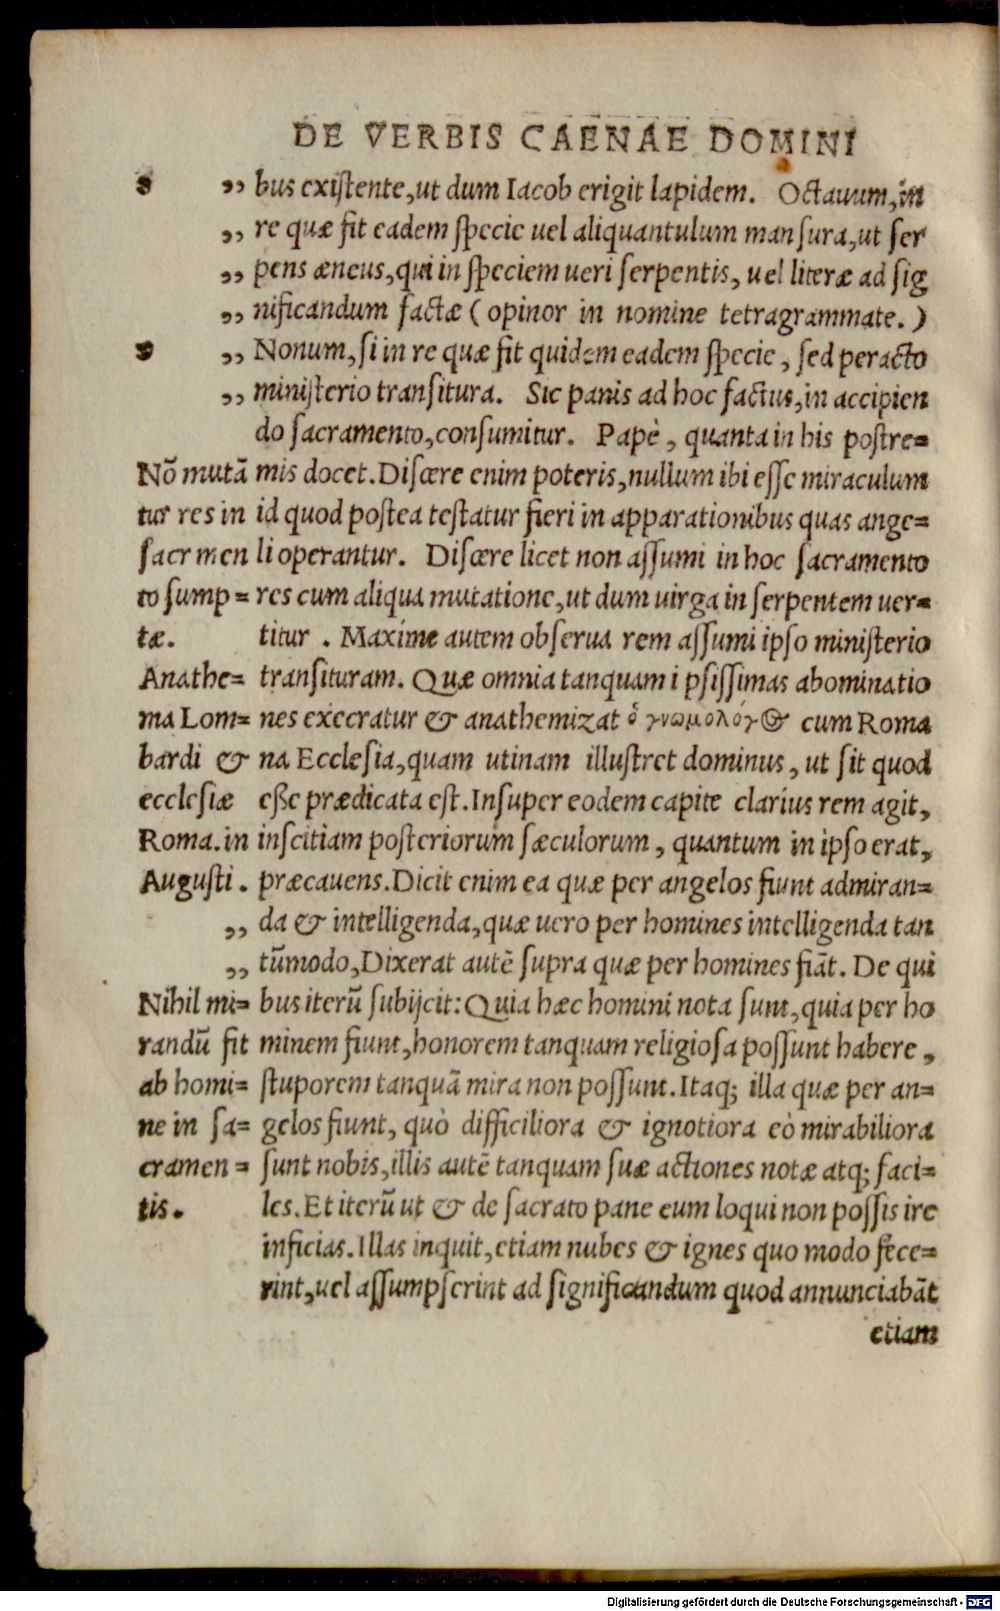 DE VERBIS CAENAE DOMINI
8 ,, bus existente, ut dum Iacob erigit lapidem. Octauum, in
,, re quæ fit eadem specie uel aliquantulum mansura, ut ser
,, pens æneus, qui in speciem ueri serpentis, uel literæ ad sig
,, nificandum factæ (opinor in nomine tetragrammate.)
9 ,, Nonum, si in re quæ fit quidem eadem specie, sed peracto
,, ministerio transitura. Sic panis ad hoc factus, in accipien
do sacramento, consumitur. Papè, quanta in his postre=
Nō mutā mis docet. Discere enim poteris, nullum ibi esse miraculum
tur res in id quod postea testatur fieri in apparationibus quas ange=
sacr men li operantur. Discere licet non assumi in hoc sacramento
to sump= res cum aliqua mutatione, ut dum uirga in serpentem uer=
tæ. titur. Maxime autem obserua rem assumi ipso ministerio
Anathe= transituram. Quæ omnia tanquam ipsissimas abominatio
ma Lom= nes execratur & anathemizat ὁ γνωμολόγος cum Roma
bardi & na Ecclesia, quam utinam illustret dominus, ut sit quod
ecclesiæ eße prædicata est. Insuper eodem capite clarius rem agit,
Roma. in inscitiam posteriorum sæculorum, quantum in ipso erat,
Augusti. præcauens. Dicit enim ea quæ per angelos fiunt admiran=
,, da & intelligenda, quæ uero per homines intelligenda tan
,, tūmodo, Dixerat autē supra quæ per homines fiāt. De qui
Nihil mi= bus iterū subijcit: Quia hæc homini nota sunt, quia per ho
randū fit minem fiunt, honorem tanquam religiosa possunt habere,
ab homi= stuporem tanquā mira non possunt. Itaq; illa quæ per an=
ne in sa= gelos fiunt, quò difficiliora & ignotiora eò mirabiliora
cramen= sunt nobis, illis autē tanquam suæ actiones notæ atq; faci=
tis. les. Et iterū ut & de sacrato pane eum loqui non possis ire
inficias. Illas inquit, etiam nubes & ignes quo modo fece=
rint, uel assumpserint ad significandum quod annunciabāt
etiam
Digitalisierung gefördert durch die Deutsche Forschungsgemeinschaft - DFG